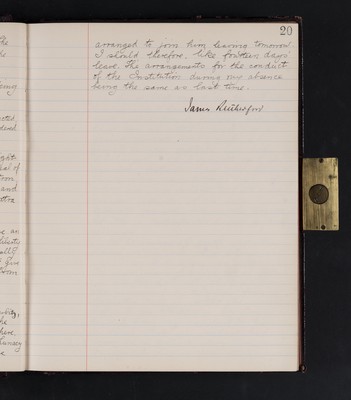 20
arranged to join him leaving tomorrow.
I should therefore, like fourteen days'
leave. The arrangements for the conduct
of the Institution during my absence
being the same as last time.
James Rutherford